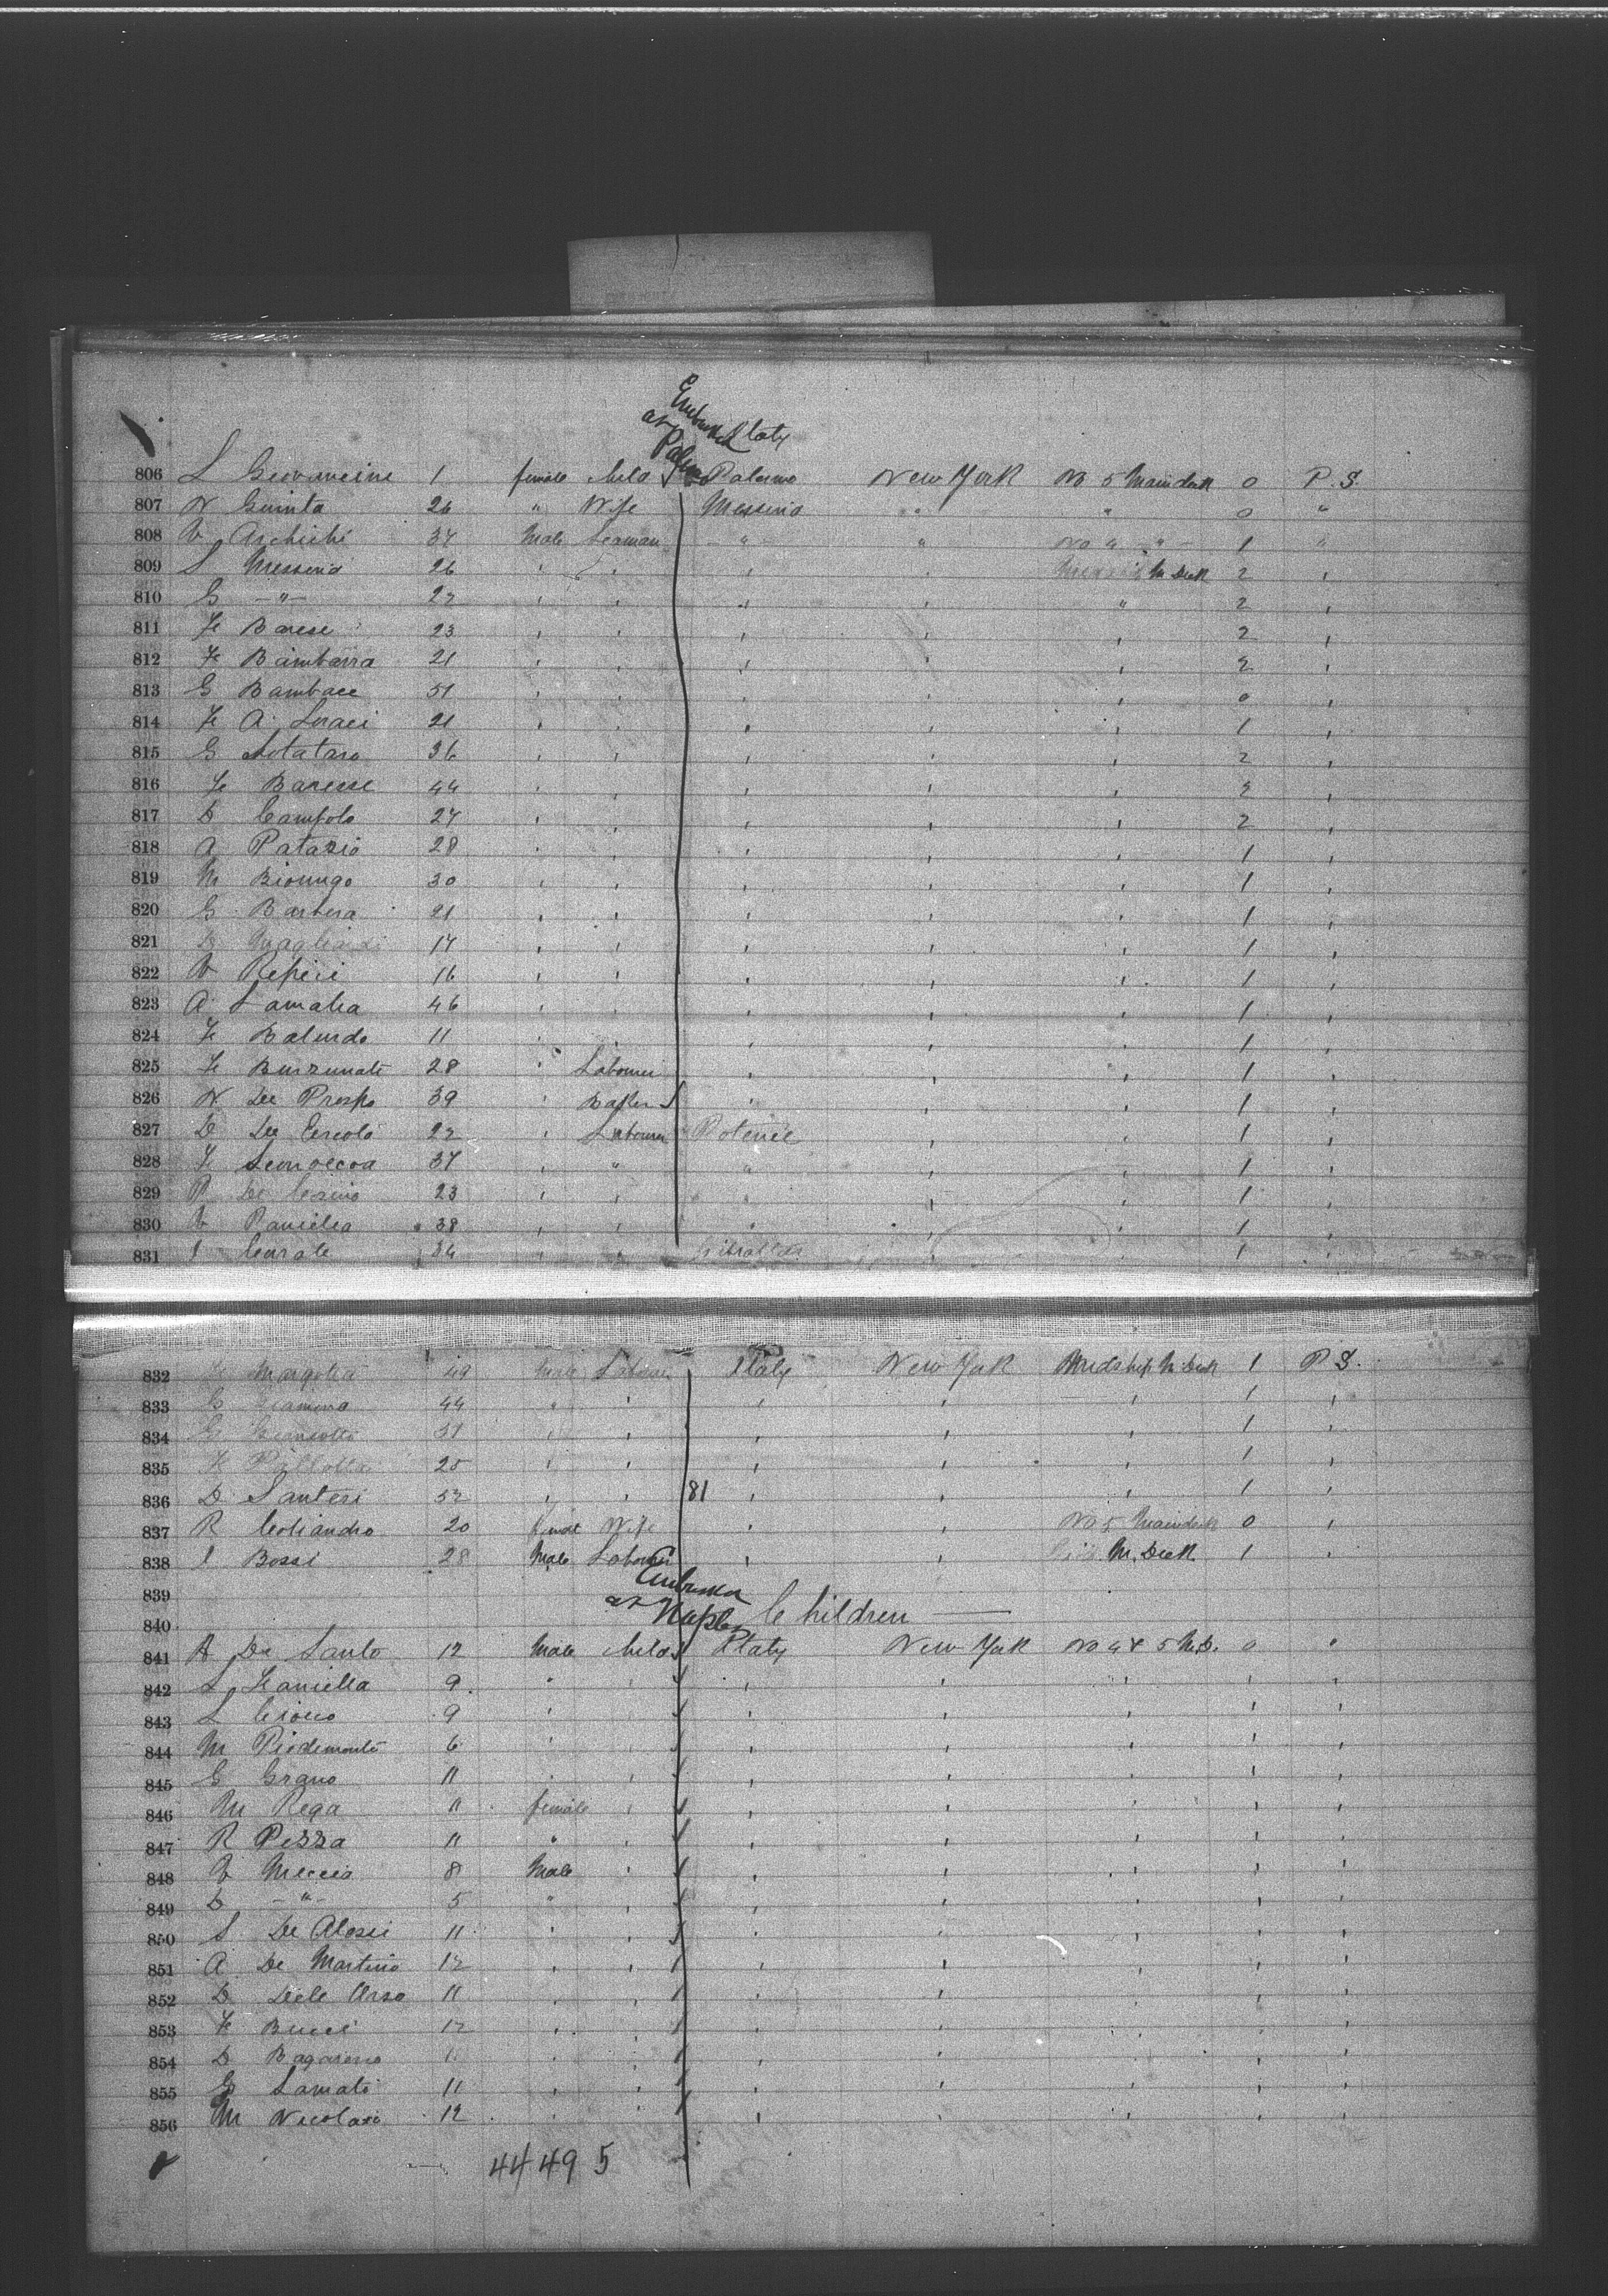 Embarked
at
Palermo
Italy
806 L Giovancine 1 female child Palermo New York No 5 Maindeck 0 P.S.
807 N Guinta 26 " Wife Messina " " 0 "
808 V Archichi 37 Male Seaman - " - " No 4 - " - 1 "
809 S Messina 26 " " " " M Deck 2 "
810 G - " - 22 " " " " " 2 "
811 F Barese 23 " " " " " 2 "
812 F Bambarra 21 " " " " " 2 "
813 G Bambace 51 " " " " " 0 "
814 F A. Luraci 21 " " " " " 1 "
815 G Notataro 36 " " " " " 2 "
816 F Baresse 44 " " " " " 2 "
817 D Campolo 27 " " " " " 2 "
818 A Patazio 28 " " " " " 1 "
819 M Bionngo 30 " " " " " 1 "
820 G Barbera 21 " " " " " 1 "
821 17 " " " " " 1 "
822 V Repici 16 " " " " " 1 "
823 A Lamalia 46 " " " " " 1 "
824 F Balurdo 11 " " " " 1 "
825 F Burzunate 28 " Labourer " " " 1 "
826 N De Prospo 39 " Baker " " " 1 "
827 D De Ercolo 22 " Labourer Potenie " " 1 "
828 F 37 " " " " " 1 "
829 P De 23 " " " " " 1 "
830 V Paniclia 38 " " " " " 1 "
831 34 " " Gibraltar " " 1 "
832 Margolia 49 Male Labourer Italy New York Midship M Deck 1 P.S.
833 G 44 " " " " " 1 "
834 G 31 " " " " " 1 "
835 25 " " " " " 1 "
836 D Santesi 52 " " 81 " " " 1 "
837 R Coliandro 20 female Wife " " No 5 Maindeck 0 "
838 I Bossi 28 Male Labourer " " M. Deck 1 "
839
Embarked
at
Naples
840 Children
841 A De Santo 12 Male child Italy New York No 4 & 5 M.D. 0 "
842 L Janiella 9 " " " " " " "
843 L Cioeco 9 " " " " " " "
844 M Piedimonte 6 " " " " " " "
845 G Grano 11 " " " " " " "
846 M Rega 11 female " " " " " "
847 R Pezza 11 " " " " " " "
848 V Meccia 8 Male " " " " " "
849 D - " - 5 " " " " " " "
850 S De Alosei 11 " " " " " " "
851 A De Martino 12 " " " " " " "
852 D Dele Orso 11 " " " " " " "
853 F Bucci 12 " " " " " " "
854 D " " " " " " "
855 G Lamato 11 " " " " " " "
856 M Nicolasi 12 " " " " " " "
44 49 5